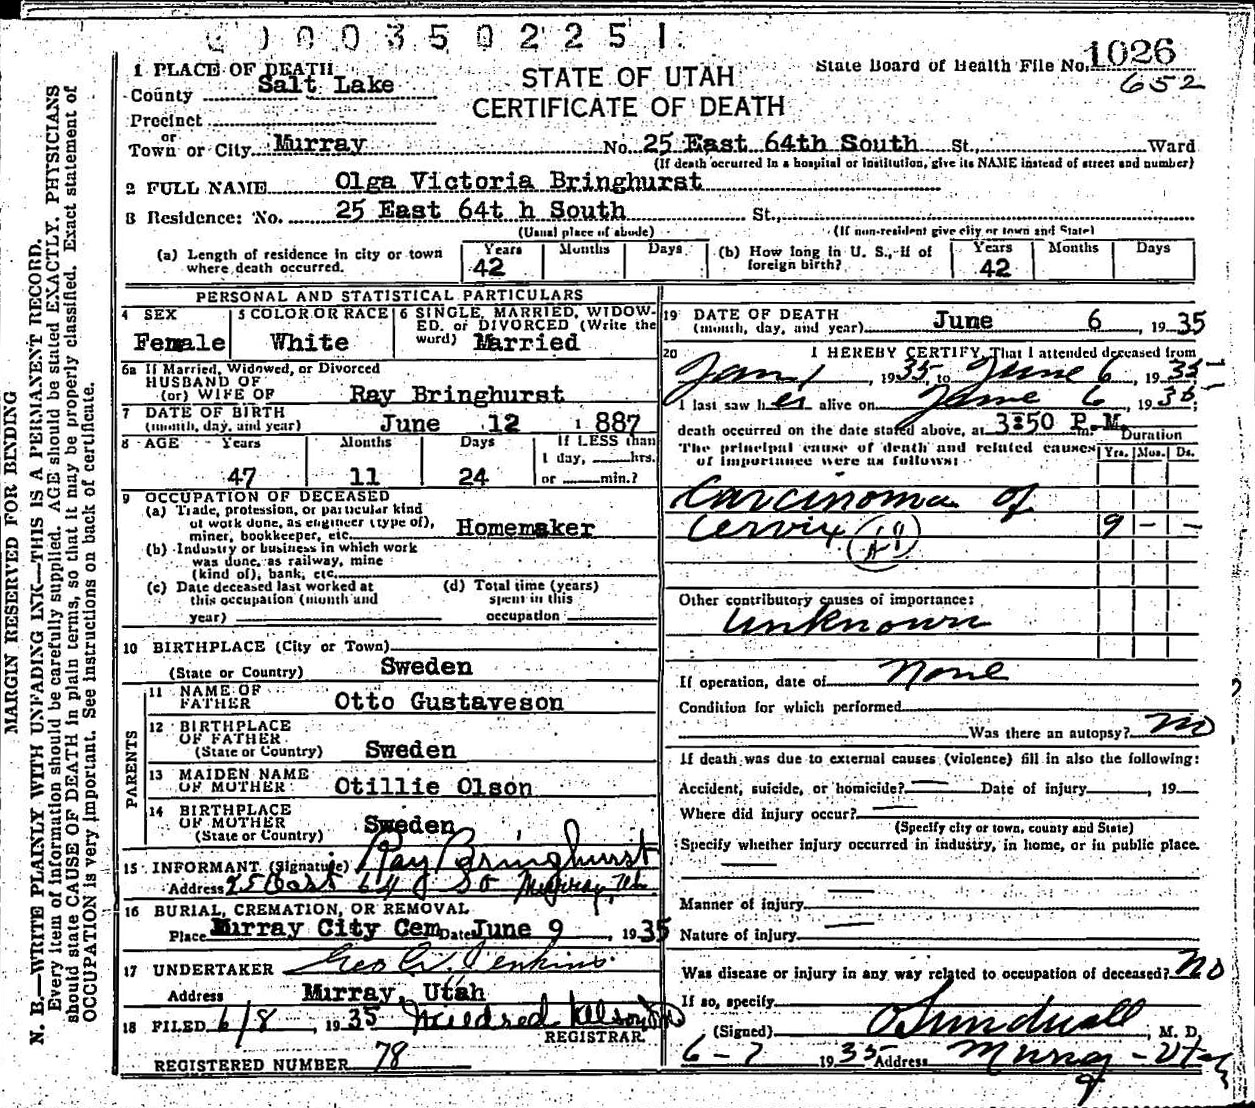 0 0 0 3 5 0 2 2 5 1
1026
State Board of Health File No.
652
STATE OF UTAH
CERTIFICATE OF DEATH
1 PLACE OF DEATH
County Salt Lake
Precinct
or
Town or City Murray No. 25 East 64th South St., Ward
(If death occurred in a hospital or institution, give its NAME instead of street and number)
2 FULL NAME Olga Victoria Bringhurst
3 Residence: No. 25 East 64t h South St.,
(Usual place of abode) (If non-resident give city or town and State)
(a) Length of residence in city or town where death occurred. Years 42 Months Days
(b) How long in U. S., if of foreign birth? Years 42 Months Days
PERSONAL AND STATISTICAL PARTICULARS
4 SEX Female
5 COLOR OR RACE White
6 SINGLE, MARRIED, WIDOW-
ED, or DIVORCED (Write the
word) Married
6a If Married, Widowed, or Divorced
HUSBAND OF
(or) WIFE OF Ray Bringhurst
7 DATE OF BIRTH
(month, day, and year) June 12 1 887
8 AGE Years Months Days If LESS than
1 day, hrs.
47 11 24 or min.?
9 OCCUPATION OF DECEASED
(a) Trade, profession, or particular kind
of work done, as engineer (type of),
miner, bookkeeper, etc. Homemaker
(b) Industry or business in which work
was done, as railway, mine
(kind of), bank, etc.
(c) Date deceased last worked at
this occupation (month and
year)
(d) Total time (years)
spent in this
occupation
10 BIRTHPLACE (City or Town)
(State or Country) Sweden
PARENTS
11 NAME OF
FATHER Otto Gustaveson
12 BIRTHPLACE
OF FATHER
(State or Country) Sweden
13 MAIDEN NAME
OF MOTHER Otillie Olson
14 BIRTHPLACE
OF MOTHER
(State or Country) Sweden
15 INFORMANT (Signature) Ray Bringhurst
Address 25 East 64 So Murray, Ut.
16 BURIAL, CREMATION, OR REMOVAL
Place Murray City Cem Date June 9, 1935
17 UNDERTAKER Geo W. Jenkins
Address Murray, Utah
18 FILED 6/8, 1935 Mildred
REGISTRAR
REGISTERED NUMBER 78
19 DATE OF DEATH
(month, day, and year) June 6, 1935
20 I HEREBY CERTIFY, That I attended deceased from
Jan 1, 1935, to June 6, 1935
I last saw her alive on June 6, 1935;
death occurred on the date stated above, at 3:50 P.M. m.
Duration
The principal cause of death and related causes
of importance were as follows:
Yrs. Mos. Ds.
Carcinoma of
Cervix 9 - -
Other contributory causes of importance:
Unknown
If operation, date of None
Condition for which performed
Was there an autopsy? No
If death was due to external causes (violence) fill in also the following:
Accident, suicide, or homicide? — Date of injury , 19
Where did injury occur? —
(Specify city or town, county and State)
Specify whether injury occurred in industry, in home, or in public place.
—
Manner of injury —
Nature of injury —
Was disease or injury in any way related to occupation of deceased? No
If so, specify
(Signed) O Sundwall M. D.
6-7 1935 Address Murray - Utah
9
MARGIN RESERVED FOR BINDING
N. B.—WRITE PLAINLY WITH UNFADING INK—THIS IS A PERMANENT RECORD.
Every item of information should be carefully supplied. AGE should be stated EXACTLY. PHYSICIANS
should state CAUSE OF DEATH in plain terms, so that it may be properly classified. Exact statement of
OCCUPATION is very important. See instructions on back of certificate.